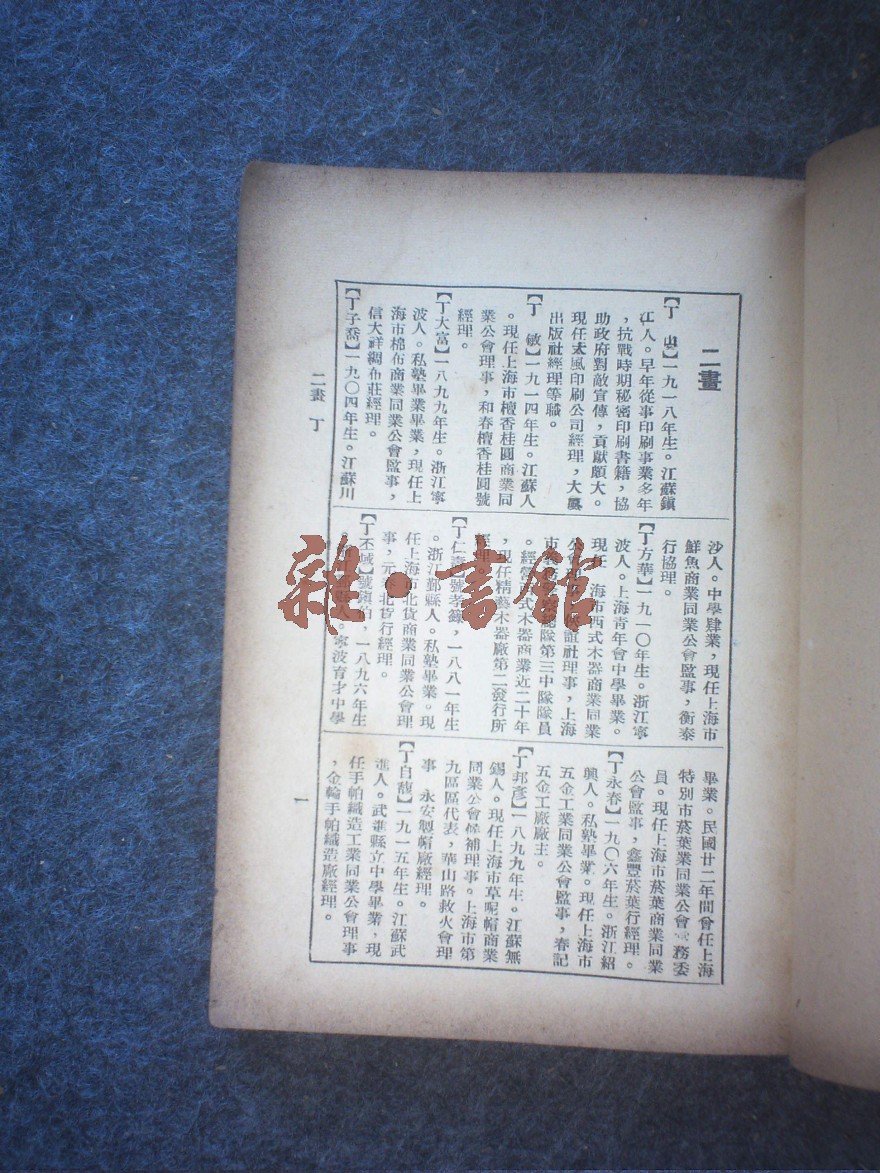 二畫
【丁 山】一九一八年生。江蘇鎮
江人。早年從事印刷事業多年
，抗戰時期秘密印刷書籍，協
助政府對敵宣傳，貢獻頗大。
現任大風印刷公司經理，大
出版社經理等職。
【丁 敏】一九一四年生。江蘇人
。現任上海市檀香桂圓商業同
業公會理事，和春檀香桂圓號
經理。
【丁大富】一八九九年生。浙江寧
波人。私塾畢業畢業，現任上
海市棉布商業同業公會監事，
信大祥綢布莊經理。
【丁子喬】一九〇四年生。江蘇川
沙人。中學肄業，現任上海市
鮮魚商業同業公會監事，衡泰
行協理。
【丁方華】一九一〇年生。浙江寧
波人。上海青年會中學畢業。
現任 海市西式木器商業同業
公會 社理事，上海
市 隊第三中隊隊員
。經營西式木器商業近二十年
，現任精藝木器廠第二發行所
經理。
【丁仁 號孝 ，一八八一年生
。浙江鄞縣人。私塾畢業。現
任上海市北貨商業同業公會理
事，元 北貨行經理。
【丁丕 】號 ，一八九六年生
人。寧波育才中學
畢業。民國廿二年間曾任上海
特別市菸葉業同業公會 務委
員。現任上海市菸葉商業同業
公會監事，鑫豐菸葉行經理。
【丁永春】一九〇六年生。浙江紹
興人。私塾畢業。現任上海市
五金工業同業公會監事，春記
五金工廠廠主。
【丁邦彥】一八九九年生。江蘇無
錫人。現任上海市草呢帽商業
同業公會候補理事。上海市第
九區區代表，華山路救火會理
事 永安製帽廠經理。
【丁自馥】一九一五年生。江蘇武
進人。武進縣立中學畢業，現
任手帕織造工業同業公會理事
，金輪手帕織造廠經理。
二畫 丁
一
雜·書館